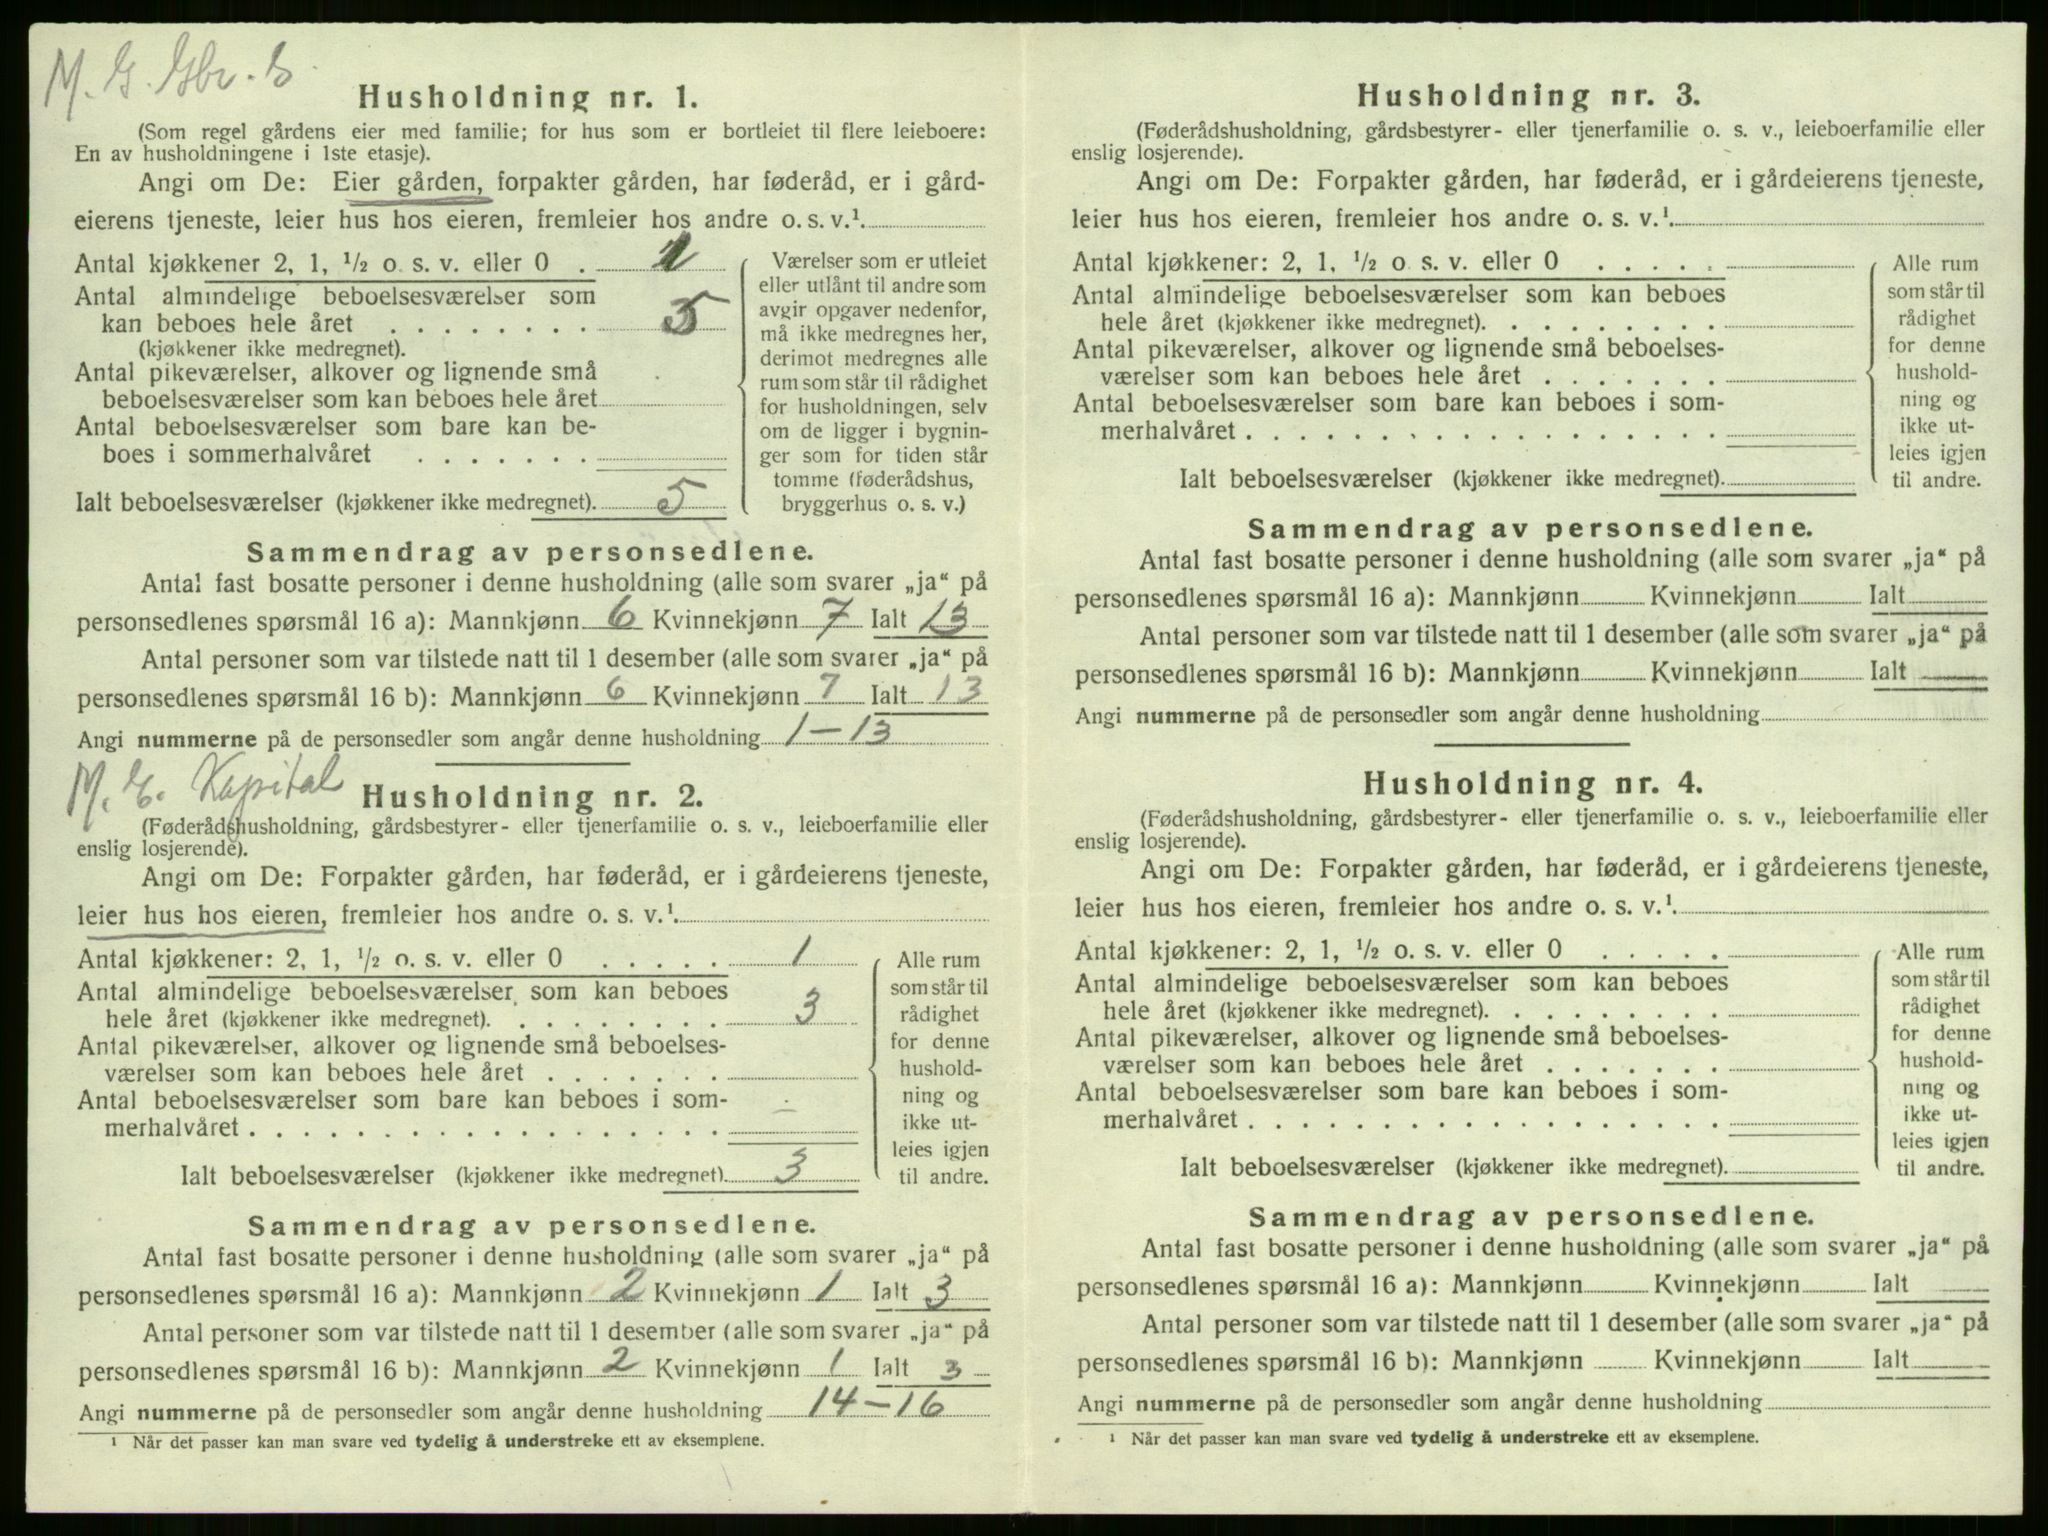 M. G. Gbr. S.
Husholdning nr. 1.
(Som regel gårdens eier med familie; for hus som er bortleiet til flere leieboere:
En av husholdningene i 1ste etasje).
Angi om De: Eier gården, forpakter gården, har føderåd, er i gård-
eierens tjeneste, leier hus hos eieren, fremleier hos andre o. s. v.¹
Antal kjøkkener 2, 1, ½ o. s. v. eller 0 . 1
Antal almindelige beboelsesværelser som
kan beboes hele året . . . . . . . . 5
(kjøkkener ikke medregnet).
Antal pikeværelser, alkover og lignende små
beboelsesværelser som kan beboes hele året
Antal beboelsesværelser som bare kan be-
boes i sommerhalvåret . . . . . . .
Ialt beboelsesværelser (kjøkkener ikke medregnet). 5
Værelser som er utleiet
eller utlånt til andre som
avgir opgaver nedenfor,
må ikke medregnes her,
derimot medregnes alle
rum som står til rådighet
for husholdningen, selv
om de ligger i bygnin-
ger som for tiden står
tomme (føderådshus,
bryggerhus o. s. v.)
Sammendrag av personsedlene.
Antal fast bosatte personer i denne husholdning (alle som svarer „ja“ på
personsedlenes spørsmål 16 a): Mannkjønn 6 Kvinnekjønn 7 Ialt 13
Antal personer som var tilstede natt til 1 desember (alle som svarer „ja“ på
personsedlenes spørsmål 16 b): Mannkjønn 6 Kvinnekjønn 7 Ialt 13
Angi nummerne på de personsedler som angår denne husholdning 1–13
M. G. Kapital
Husholdning nr. 2.
(Føderådshusholdning, gårdsbestyrer- eller tjenerfamilie o. s. v., leieboerfamilie eller
enslig losjerende).
Angi om De: Forpakter gården, har føderåd, er i gårdeierens tjeneste,
leier hus hos eieren, fremleier hos andre o. s. v.¹
Antal kjøkkener: 2, 1, ½ o. s. v. eller 0 . . . . . 1
Antal almindelige beboelsesværelser som kan beboes
hele året (kjøkkener ikke medregnet). . . . . . . . . 3
Antal pikeværelser, alkover og lignende små beboelses-
værelser som kan beboes hele året . . . . . . .
Antal beboelsesværelser som bare kan beboes i som-
merhalvåret . . . . . . . . . . . . . . . . . .
Ialt beboelsesværelser (kjøkkener ikke medregnet). 3
Alle rum
som står til
rådighet
for denne
hushold-
ning og
ikke ut-
leies igjen
til andre.
Sammendrag av personsedlene.
Antal fast bosatte personer i denne husholdning (alle som svarer „ja“ på
personsedlenes spørsmål 16 a): Mannkjønn 2 Kvinnekjønn 1 Ialt 3
Antal personer som var tilstede natt til 1 desember (alle som svarer „ja“ på
personsedlenes spørsmål 16 b): Mannkjønn 2 Kvinnekjønn 1 Ialt 3
Angi nummerne på de personsedler som angår denne husholdning 14–16
¹ Når det passer kan man svare ved tydelig å understreke ett av eksemplene.
Husholdning nr. 3.
(Føderådshusholdning, gårdsbestyrer- eller tjenerfamilie o. s. v., leieboerfamilie eller
enslig losjerende).
Angi om De: Forpakter gården, har føderåd, er i gårdeierens tjeneste,
leier hus hos eieren, fremleier hos andre o. s. v.¹
Antal kjøkkener: 2, 1, ½ o. s. v. eller 0 . . . . .
Antal almindelige beboelsesværelser som kan beboes
hele året (kjøkkener ikke medregnet). . . . . . . . .
Antal pikeværelser, alkover og lignende små beboelses-
værelser som kan beboes hele året . . . . . . .
Antal beboelsesværelser som bare kan beboes i som-
merhalvåret . . . . . . . . . . . . . . . . . .
Ialt beboelsesværelser (kjøkkener ikke medregnet).
Alle rum
som står til
rådighet
for denne
hushold-
ning og
ikke ut-
leies igjen
til andre.
Sammendrag av personsedlene.
Antal fast bosatte personer i denne husholdning (alle som svarer „ja“ på
personsedlenes spørsmål 16 a): Mannkjønn Kvinnekjønn Ialt
Antal personer som var tilstede natt til 1 desember (alle som svarer „ja“ på
personsedlenes spørsmål 16 b): Mannkjønn Kvinnekjønn Ialt
Angi nummerne på de personsedler som angår denne husholdning
Husholdning nr. 4.
(Føderådshusholdning, gårdsbestyrer- eller tjenerfamilie o. s. v., leieboerfamilie eller
enslig losjerende).
Angi om De: Forpakter gården, har føderåd, er i gårdeierens tjeneste,
leier hus hos eieren, fremleier hos andre o. s. v.¹
Antal kjøkkener: 2, 1, ½ o. s. v. eller 0 . . . . .
Antal almindelige beboelsesværelser som kan beboes
hele året (kjøkkener ikke medregnet). . . . . . . . .
Antal pikeværelser, alkover og lignende små beboelses-
værelser som kan beboes hele året . . . . . . .
Antal beboelsesværelser som bare kan beboes i som-
merhalvåret . . . . . . . . . . . . . . . . . .
Ialt beboelsesværelser (kjøkkener ikke medregnet).
Alle rum
som står til
rådighet
for denne
hushold-
ning og
ikke ut-
leies igjen
til andre.
Sammendrag av personsedlene.
Antal fast bosatte personer i denne husholdning (alle som svarer „ja“ på
personsedlenes spørsmål 16 a): Mannkjønn Kvinnekjønn Ialt
Antal personer som var tilstede natt til 1 desember (alle som svarer „ja“ på
personsedlenes spørsmål 16 b): Mannkjønn Kvinnekjønn Ialt
Angi nummerne på de personsedler som angår denne husholdning
¹ Når det passer kan man svare ved tydelig å understreke ett av eksemplene.